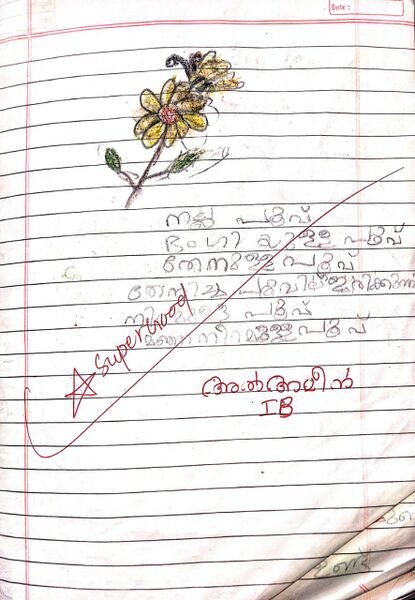 Date :
നല്ല പൂവ്
ഭംഗിയുള്ള പൂവ്
തേനുള്ള പൂവ്
പൂവ്
മഞ്ഞ നിറമുള്ള പൂവ്
Super Good
അൽഅമീൻ
I B